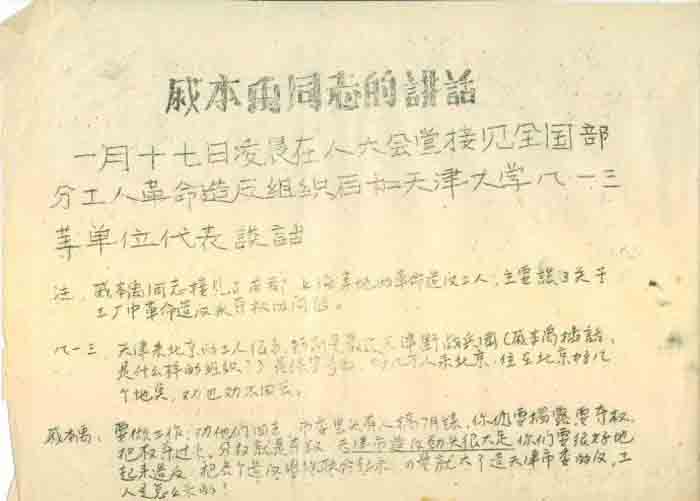 戚本禹同志的讲話
一月十七日凌晨在人大会堂接见全国部
分工人革命造反组织后和天津大学八一三
等单位代表談話
注:戚本禹同志接见了首都、上海等地的革命造反工人,主要談了关于
工厂中革命造反派夺权的问题。
八一三:天津来北京的工人很多,特别是最近天津野战兵团(戚本禹插話:
是什么样的组织?)几万人来北京,住在北京好几
个地失,劝也劝不回去。
戚本禹:要做工作,劝他们回去,市委里头有人搞,你们要揭露要夺权,
把权夺过来,天津市造反劲头很大是你们要很好地
起来造反,把各个造反造天津市委的反,工
人是怎么来的!